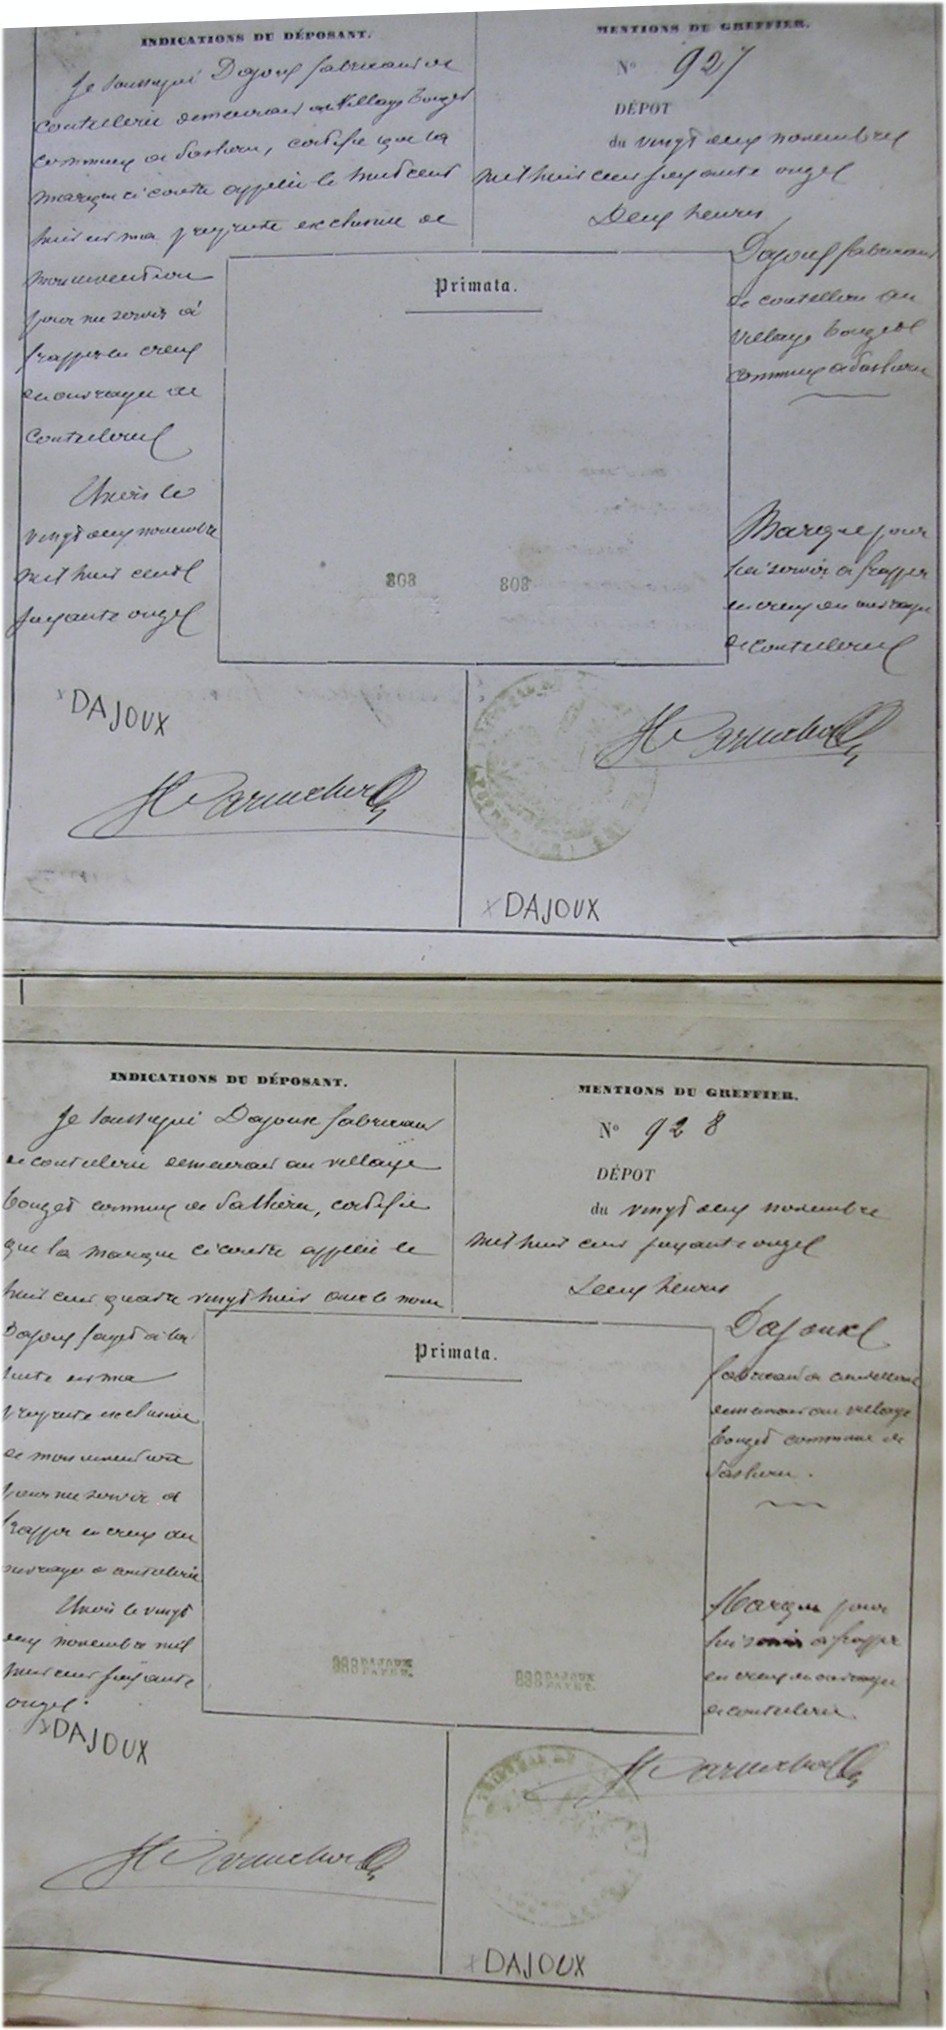 INDICATIONS DU DÉPOSANT.
Je soussigné Dajoux fabricant de
coutellerie demeurant au Village Bouget
commune de Sashierre, certifie que la
marque ci contre appelée le huit cent
huit est ma propriété exclusive de
mon invention
pour me servir à
frapper en creux
des ouvrages de
Coutellerie
Thiers le
vingt deux novembre
mil huit cent
soixante onze
DAJOUX
MENTIONS DU GREFFIER.
No 927
DÉPOT
du vingt deux novembre
mil huit cent soixante onze
Deux heures
Dajoux fabricant
de coutellerie au
village Bouget
commune de
Primata.
808 808
Marque pour
lui servir à frapper
en creux des ouvrages
de coutellerie
DAJOUX
INDICATIONS DU DÉPOSANT.
Je soussigné Dajoux fabricant
de coutellerie demeurant au village
Bouget commune de certifie
que la marque ci contre appelée le
huit cent quatre vingt huit avec le nom
Dajoux Fayet à la
suite est ma
propriété exclusive
de mon invention
pour me servir à
frapper en creux des
ouvrages de coutellerie
Thiers le vingt
deux novembre mil
huit cent soixante
onze.
DAJOUX
MENTIONS DU GREFFIER.
No 928
DÉPOT
du vingt deux novembre
mil huit cent soixante onze
Deux heures
Dajoux
fabricant de coutellerie
demeurant au village
Bouget commune de
Primata.
888 DAJOUX
FAYET.
888 DAJOUX
FAYET.
Marque pour
lui servir à frapper
en creux des ouvrages
de coutellerie
DAJOUX